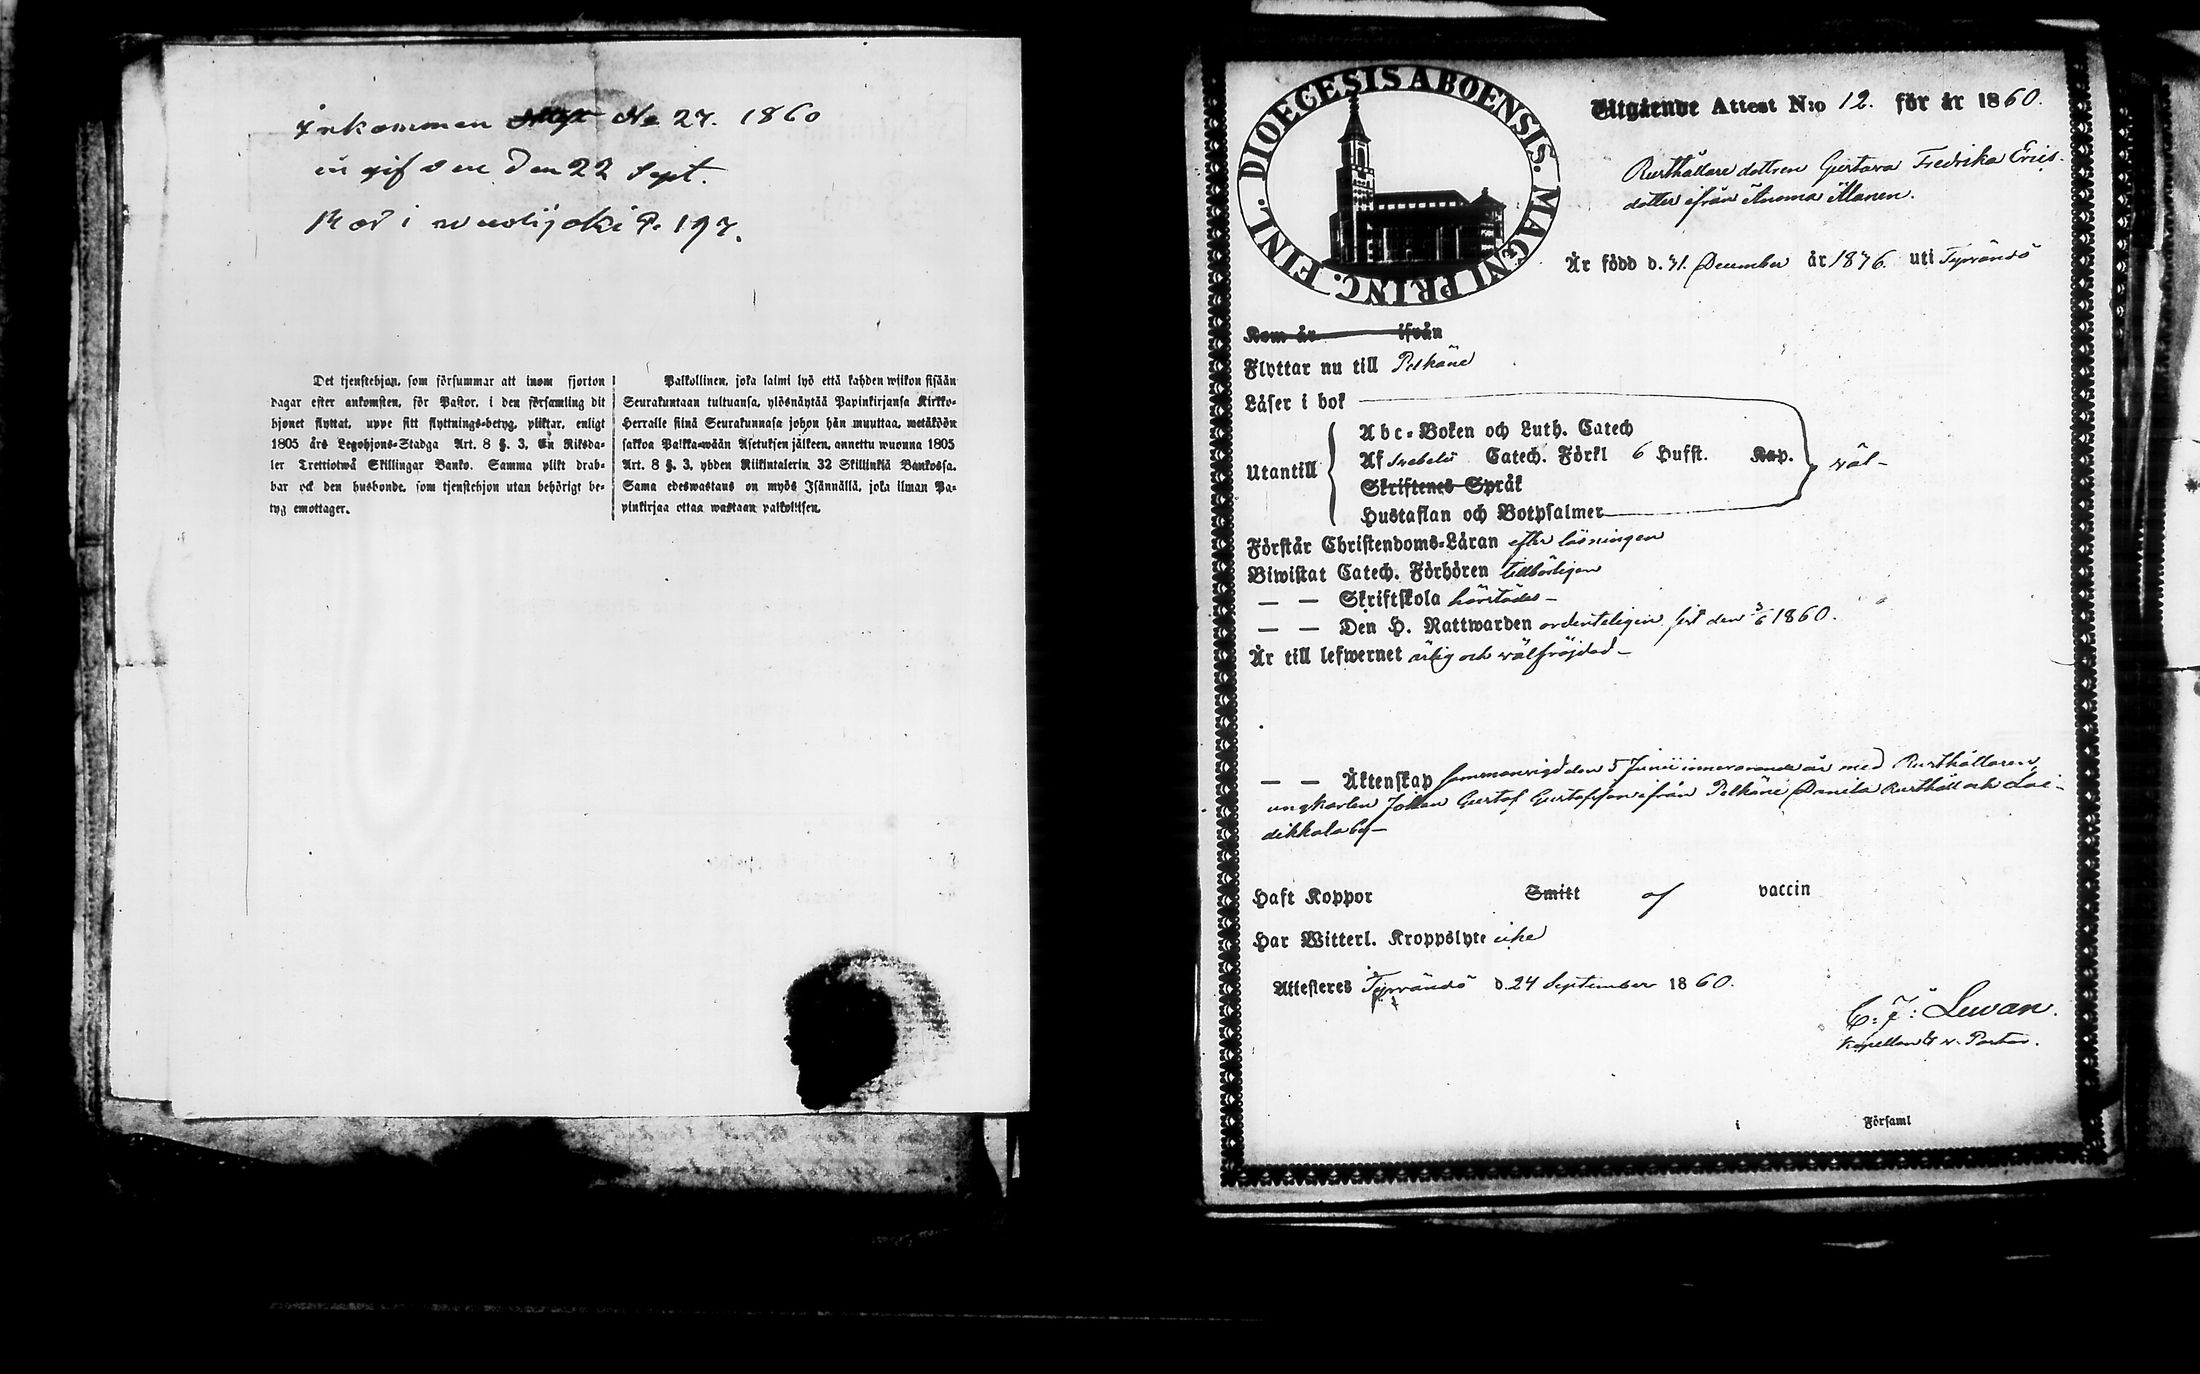 Inkommen No 27. 1860
in gifven den 22 Sept.
Det tjenstehjon, som försummar att inom fjorton
dagar efter ankomsten, för Pastor, i den församling dit
hjonet flyttat, uppe sitt flyttnings-betyg, pliktar, enligt
1805 års Legohjons-Stadga Art. 8 §. 3, En Riksda-
ler Trettiotwå Skillingar Banko. Samma plikt drab-
bar ock den husbonde, som tjenstehjon utan behörigt be-
tyg emottager.
Palkollinen, joka laimi lyö että kahden wiikon sisään
Seurakuntaan tultuansa, ylösnäytää Papinkirjansa Kirkko-
Herralle siinä Seurakunnasa johon hän muuttaa, wetäköön
sakkoa Palkka-wään Asetuksen jälkeen, annettu wuonna 1805
Art. 8 §. 3, yhden Riikintalerin 32 Skillinkiä Bankossa.
Sama edeswastaus on myös Isännällä, joka ilman Pa-
pinkirjaa ottaa wastaan palkollisen.
DIOECESIS ABOENSIS. MAGNI PRINC. FINL.
Utgående Attest N:o 12. för år 1860.
Rusthållare dottren Gustava Fredrika Erics-
dotter ifrån
Är född d. 31. December år 1836. uti Tyrvändö
Kom år ifrån
Flyttar nu till Pelkäne
Läser i bok
Utantill
Abc-Boken och Luth. Catech
Af Svebelii Catech. Förkl 6 Hufst. Kap.
Skriftenes Språk
Hustaflan och Botpsalmer
väl-
Förstår Christendoms-Läran efter läsningen
Biwistat Catech. Förhören tillbörligen
— — Skriftskola härstädes-
— — Den H. Nattwarden ordenteligen sist den 3/6 1860.
Är till lefwernet ärlig och välfräjdad-
— — Äktenskap sammanvigd den 5 Junii innevarande år med Rusthållaren,
ungkarlen Johan Gustaf Gustafsson ifrån Pelkäne Danila Rusthåll och Lai-
dikkala by-
Haft Koppor Smitt af vaccin
Har Witterl. Kroppslyte icke
Attesteres Tyrvändö d. 24 September 1860.
C: J: Levan.
Kapellan & v. Pastor.
i Församl